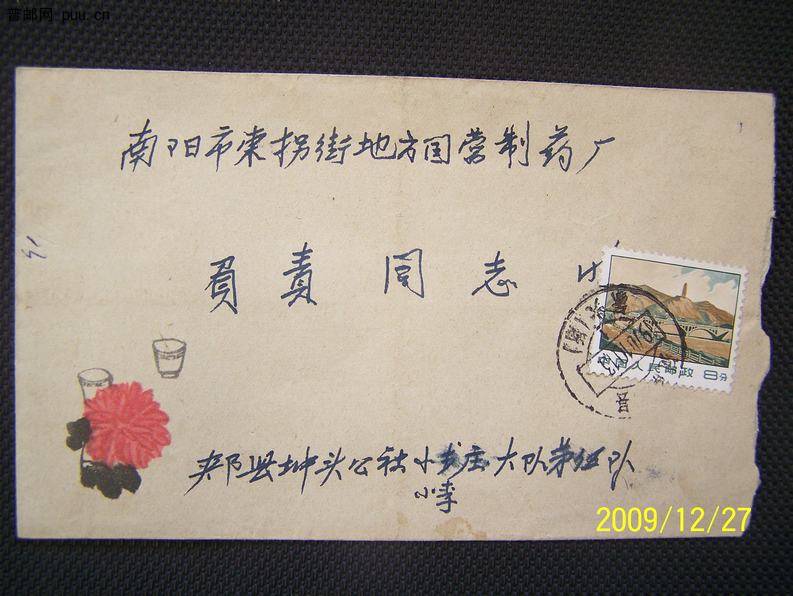 普邮网 puu.cn
南阳市东拐街地方国营制药厂
负责同志收
中国人民邮政 8分
郏县坤头公社小书庄大队第伍队
小李
2009/12/27